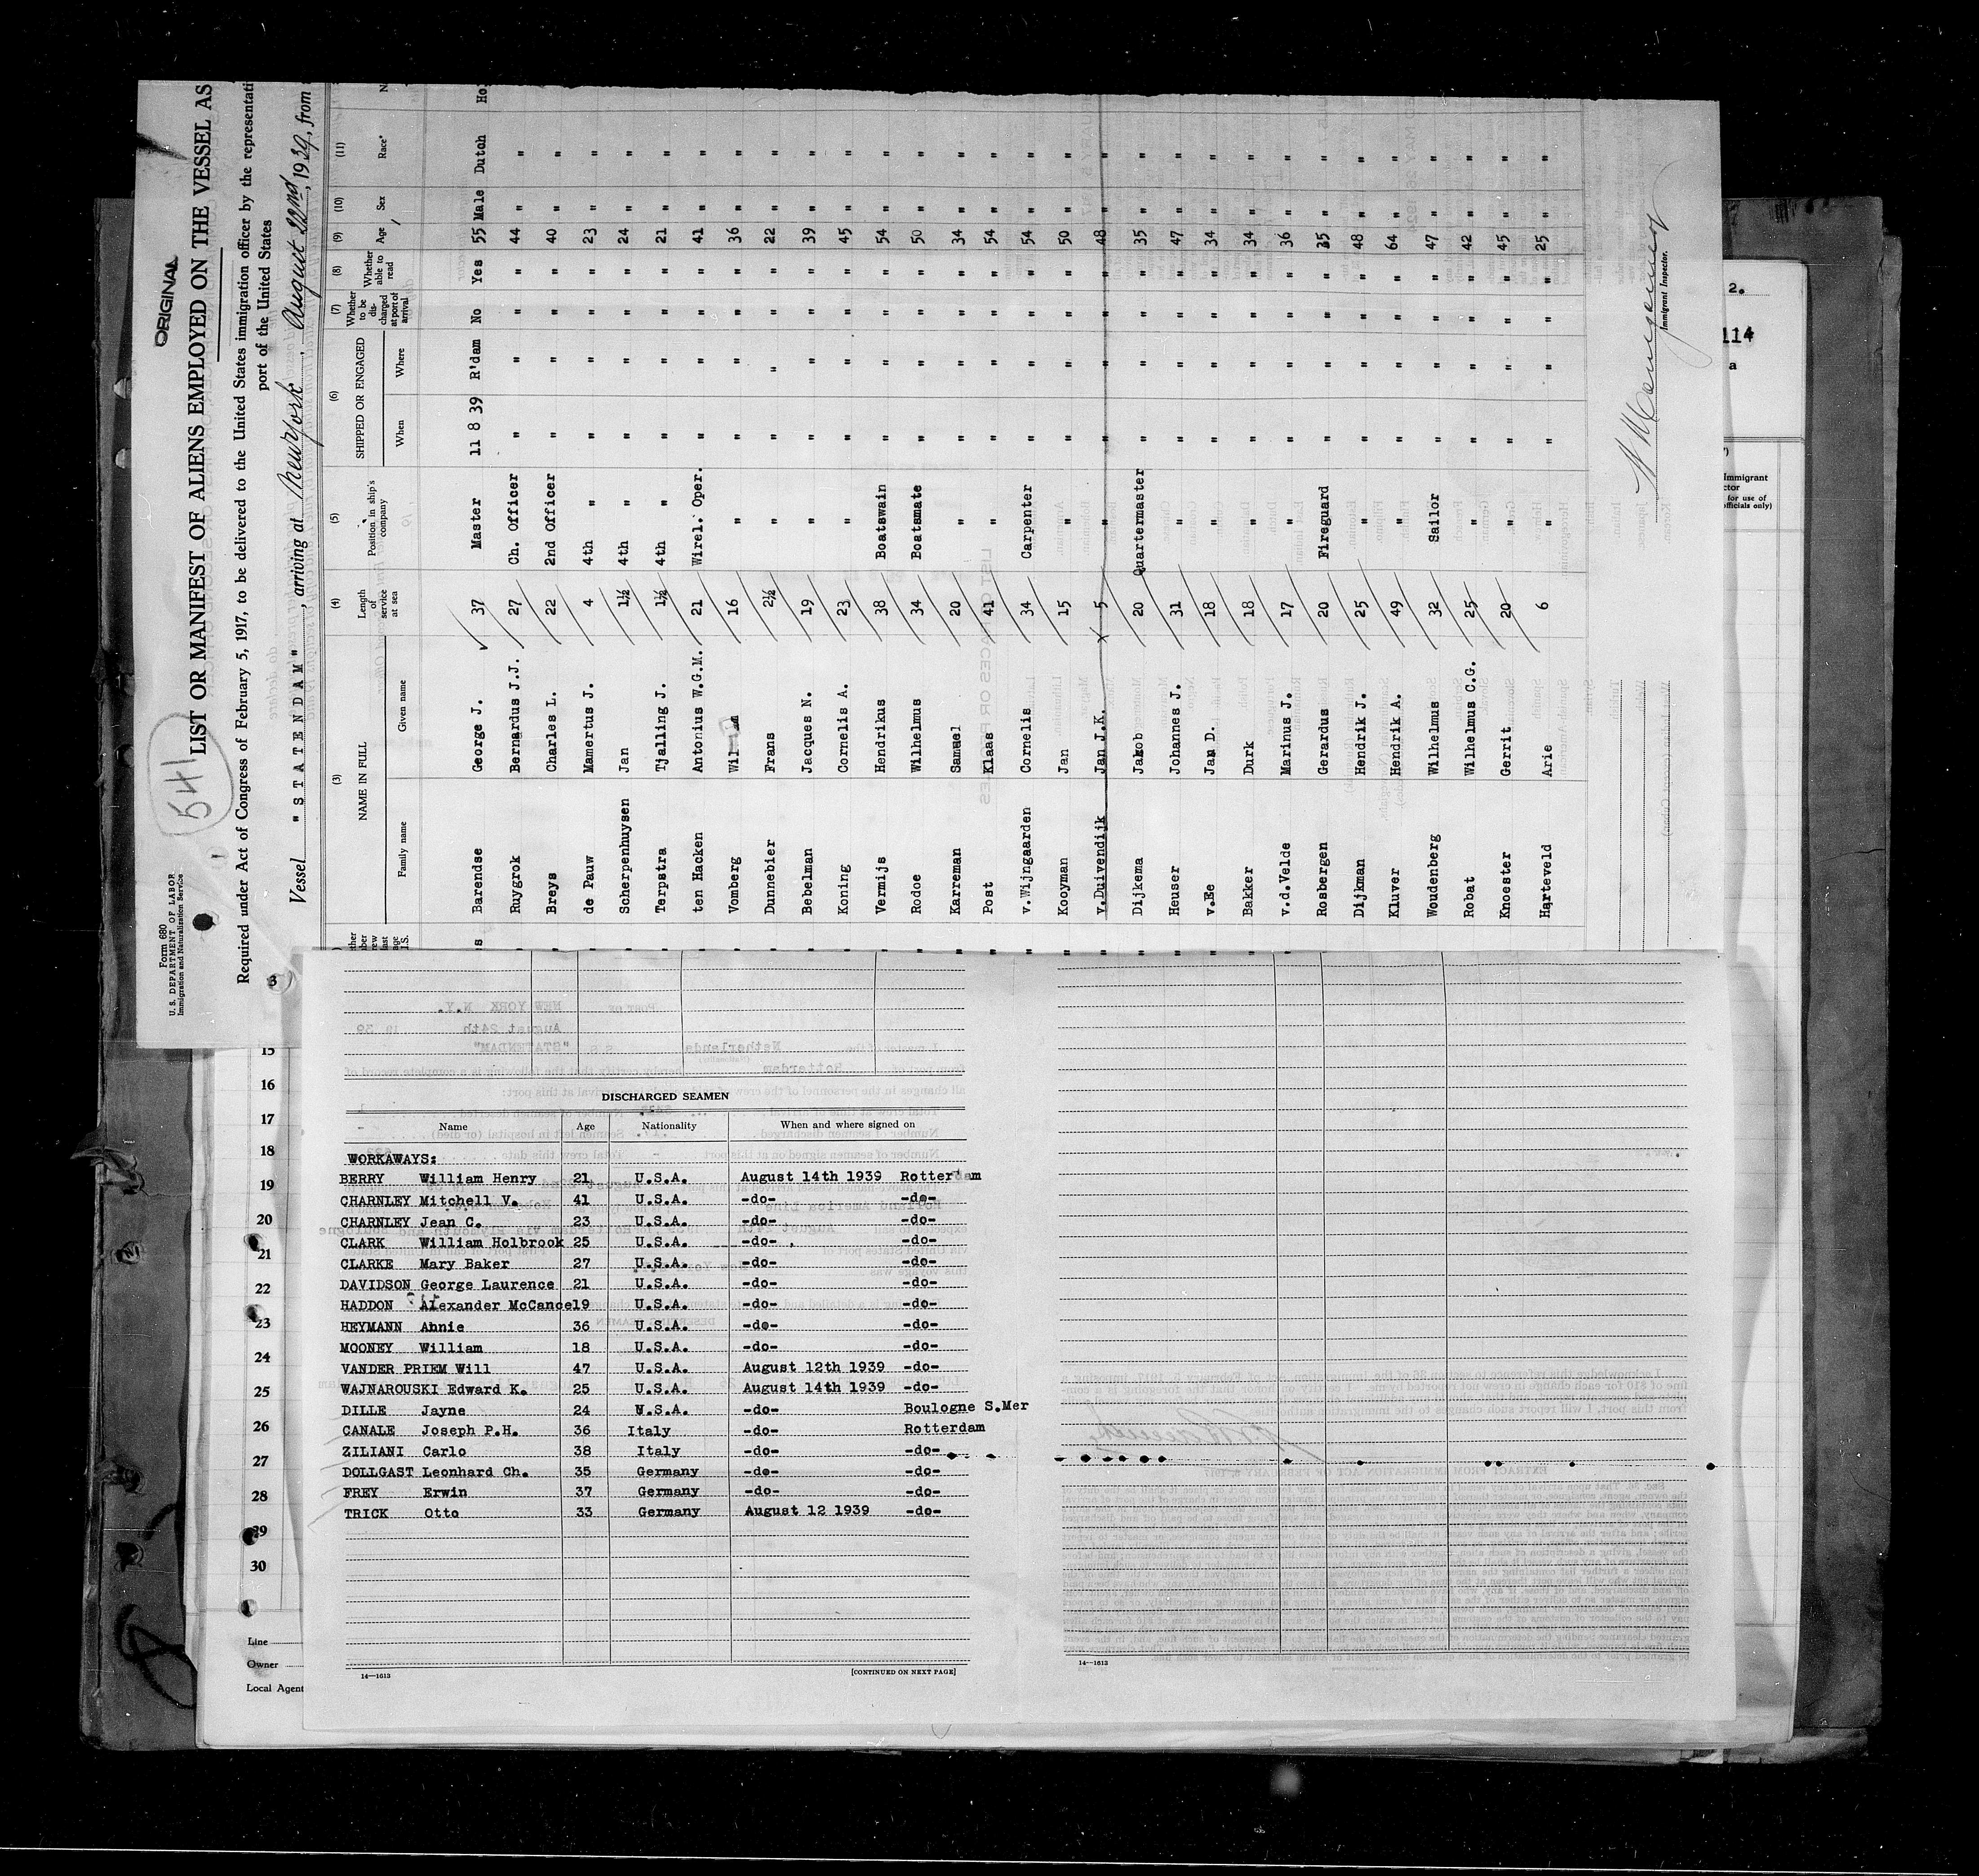 ORIGINAL
541
Form 680
U. S. DEPARTMENT OF LABOR
Immigration and Naturalization Service
LIST OR MANIFEST OF ALIENS EMPLOYED ON THE VESSEL AS
Required under Act of Congress of February 5, 1917, to be delivered to the United States immigration officer by the representati
port of the United States
Vessel "STATENDAM", arriving at New York, August 22nd, 1939, from
3
(3) (4) (5) (6) (7) (8) (9) (10) (11)
NAME IN FULL Length of service at sea Position in ship's company SHIPPED OR ENGAGED Whether to be discharged at port of arrival Whether able to read Age Sex Race*
Family name Given name When Where
Barendse George J. 37 Master 11 8 39 R'dam No Yes 55 Male Dutch Ho
Ruygrok Bernardus J.J. 27 Ch. Officer " " " " 44 " "
Breys Charles L. 22 2nd Officer " " " " 40 " "
de Pauw Mamertus J. 4 4th " " " " " 23 " "
Scherpenhuysen Jan 1½ 4th " " " " " 24 " "
Terpstra Tjalling J. 1½ 4th " " " " " 21 " "
ten Hacken Antonius W.G.M. 21 Wirel. Oper. " " " " 41 " "
Vomberg 16 " " " " " 36 " "
Dunnebier Frans 2½ " " " " " 22 " "
Bebelman Jacques N. 19 " " " " " 39 " "
Koning Cornelis A. 23 " " " " " 45 " "
Vermijs Hendrikus 38 Boatswain " " " " 54 " "
Rodoe Wilhelmus 34 Boatsmate " " " " 50 " "
Karreman Samuel 20 " " " " " 34 " "
Post Klaas 41 " " " " " 54 " "
v.Wijngaarden Cornelis 34 Carpenter " " " " 54 " "
Kooyman Jan 15 " " " " " 50 " "
v.Duivendijk Jan J.K. x 5 " " " " " 48 " "
Dijkema Jakob 20 Quartermaster " " " " 35 " "
Heuser Johannes J. 31 " " " " " 47 " "
v.Ee Jan D. 18 " " " " " 34 " "
Bakker Durk 18 " " " " " 34 " "
v.d.Velde Marinus J. 17 " " " " " 36 " "
Rosbergen Gerardus 20 Fireguard " " " " 35 " "
Dijkman Hendrik J. 25 " " " " " 48 " "
Kluver Hendrik A. 49 " " " " " 64 " "
Woudenberg Wilhelmus 32 Sailor " " " " 47 " "
Robat Wilhelmus C.G. 25 " " " " " 42 " "
Knoester Gerrit 20 " " " " " 45 " "
Harteveld Arie 6 " " " " " 25 " "
Immigrant Inspector.
2.
114
a
Immigrant
ctor
for use of
officials only)
15
16
17
18
19
20
21
22
23
24
25
26
27
28
29
30
Line
Owner
Local Agent
DISCHARGED SEAMEN
Name Age Nationality When and where signed on
WORKAWAYS:
BERRY William Henry 21 U.S.A. August 14th 1939 Rotterdam
CHARNLEY Mitchell V. 41 U.S.A. -do- -do-
CHARNLEY Jean C. 23 U.S.A. -do- -do-
CLARK William Holbrook 25 U.S.A. -do- -do-
CLARKE Mary Baker 27 U.S.A. -do- -do-
DAVIDSON George Laurence 21 U.S.A. -do- -do-
HADDON Alexander McCance 19 U.S.A. -do- -do-
HEYMANN Annie 36 U.S.A. -do- -do-
MOONEY William 18 U.S.A. -do- -do-
VANDER PRIEM Will 47 U.S.A. August 12th 1939 -do-
WAJNAROUSKI Edward K. 25 U.S.A. August 14th 1939 -do-
DILLE Jayne 24 U.S.A. -do- Boulogne S.Mer
CANALE Joseph P.H. 36 Italy -do- Rotterdam
ZILIANI Carlo 38 Italy -do- -do-
DOLLGAST Leonhard Ch. 35 Germany -do- -do-
FREY Erwin 37 Germany -do- -do-
TRICK Otto 33 Germany August 12 1939 -do-
14—1613
[CONTINUED ON NEXT PAGE]
14—1613